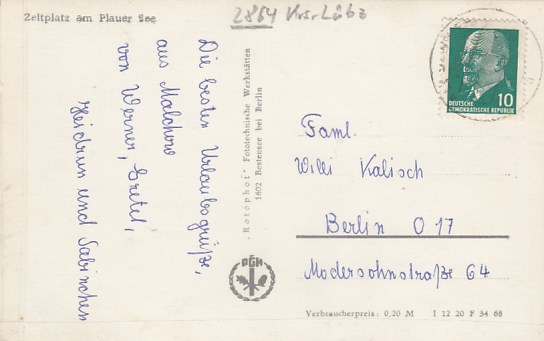 Zeltplatz am Plauer See
2864 Krs. Lübz
Die besten Urlaubsgrüße,
aus Malchow
von Werner, Gretel,
Heidrun und Sabinchen
"Rotophot" Fototechnische Werkstätten
1602 Bestensee bei Berlin
PGH
DEUTSCHE
DEMOKRATISCHE REPUBLIK
10
Faml.
Willi Kalisch
Berlin O 17
Modersohnstraße 64
Verbraucherpreis: 0,20 M I 12 20 F 34 68